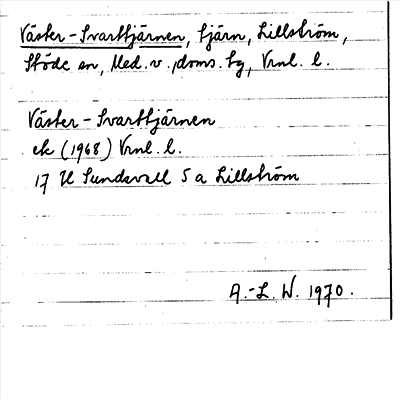 Väster-Svarttjärnen, tjärn, Lillström,
Stöde sn, Med. v. doms. tg, Vrnl. l.
Väster-Svarttjärnen
ek (1968) Vrnl. l.
17 H Sundsvall 5 a Lillström
A.-L. W. 1970.